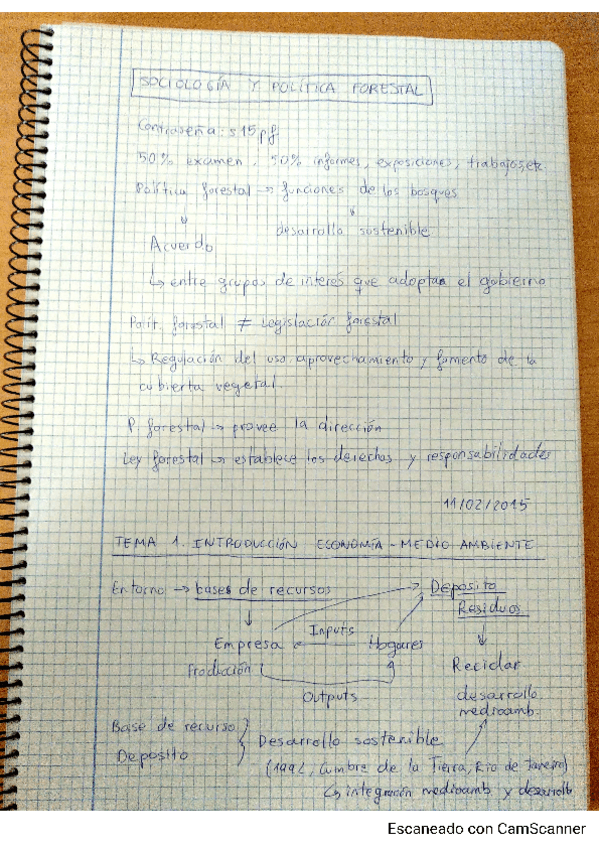 SOCIOLOGÍA Y POLÍTICA FORESTAL
Contraseña: s15pf
50% examen, 50% informes, exposiciones, trabajos, etc.
Política forestal → funciones de los bosques
desarrollo sostenible
Acuerdo
↳ entre grupos de interés que adoptan el gobierno
Polít. forestal ≠ Legislación forestal
↳ Regulación del uso, aprovechamiento y fomento de la
cubierta vegetal.
P. forestal → provee la dirección
Ley forestal → establece los derechos y responsabilidades
11/02/2015
TEMA 1. INTRODUCCIÓN ECONOMÍA - MEDIO AMBIENTE
Entorno → bases de recursos
Depósito
Residuos
Inputs
Empresa
Hogares
Producción
Reciclar
Outputs
desarrollo
medioamb.
Base de recurso
Depósito
Desarrollo sostenible
(1992, Cumbre de la Tierra, Río de Janeiro)
↳ integración medioamb. y desarrollo
Escaneado con CamScanner